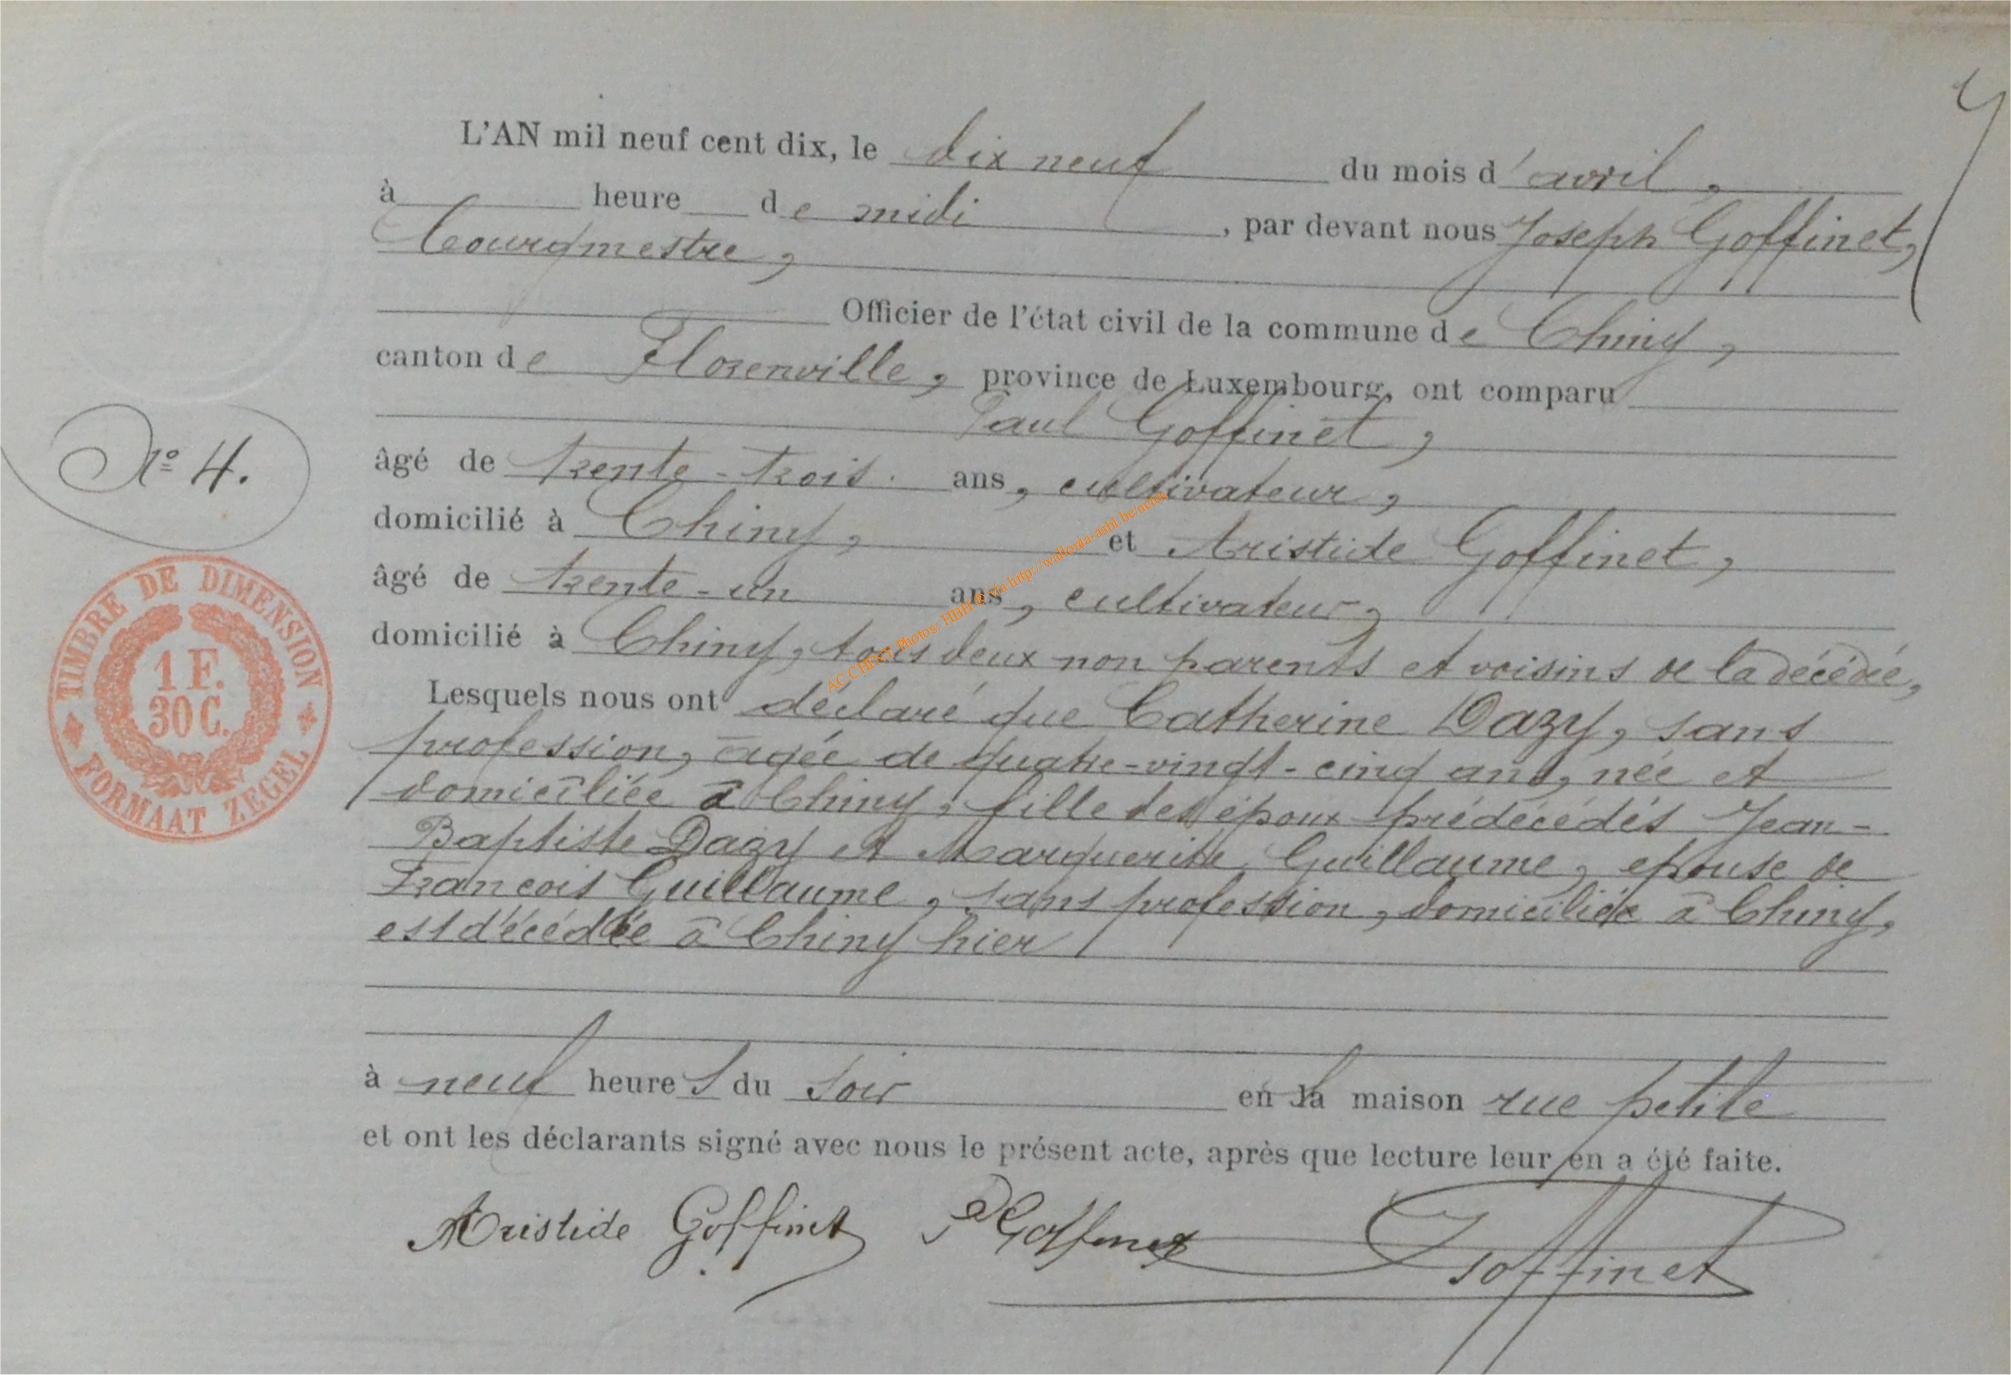 L'AN mil neuf cent dix, le dix neuf du mois d'avril,
à heure de midi, par devant nous Joseph Goffinet,
bourgmestre,
Officier de l'état civil de la commune de Chiny,
canton de Florenville, province de Luxembourg, ont comparu
Paul Goffinet,
âgé de trente-trois ans, cultivateur,
domicilié à Chiny, et Aristide Goffinet,
âgé de trente-un ans, cultivateur,
domicilié à Chiny, tous deux non parents et voisins de la décédée,
Lesquels nous ont déclaré que Catherine Dazy, sans
profession, âgée de quatre-vingt-cinq ans, née et
domiciliée à Chiny, fille des époux prédécédés Jean-
Baptiste Dazy et Marguerite Guillaume, épouse de
François Guillaume, sans profession, domiciliée à Chiny,
est décédée à Chiny hier
à neuf heures du soir en la maison rue petite
et ont les déclarants signé avec nous le présent acte, après que lecture leur en a été faite.
Aristide Goffinet P Goffinet J Goffinet
No 4.
TIMBRE DE DIMENSION
1 F.
30 C.
FORMAAT ZEGEL